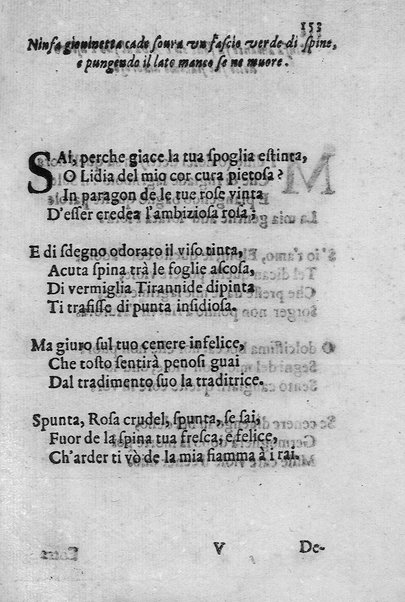 153
Ninfa giouinetta cade soura vn fascio verde di spine,
e pungendo il lato manco se ne muore.
SAI, perche giace la tua spoglia estinta,
O Lidia del mio cor cura pietosa?
In paragon de le tue rose vinta
D'esser credea l'ambiziosa rosa;
E di sdegno odorato il viso tinta,
Acuta spina trà le foglie ascosa,
Di vermiglia Tirannide dipinta
Ti trafisse di punta insidiosa.
Ma giuro sul tuo cenere infelice,
Che tosto sentirà penosi guai
Dal tradimento suo la traditrice.
Spunta, Rosa crudel, spunta, se sai,
Fuor de la spina tua fresca, e felice,
Ch'arder ti vò de la mia fiamma à i rai.
V
De-